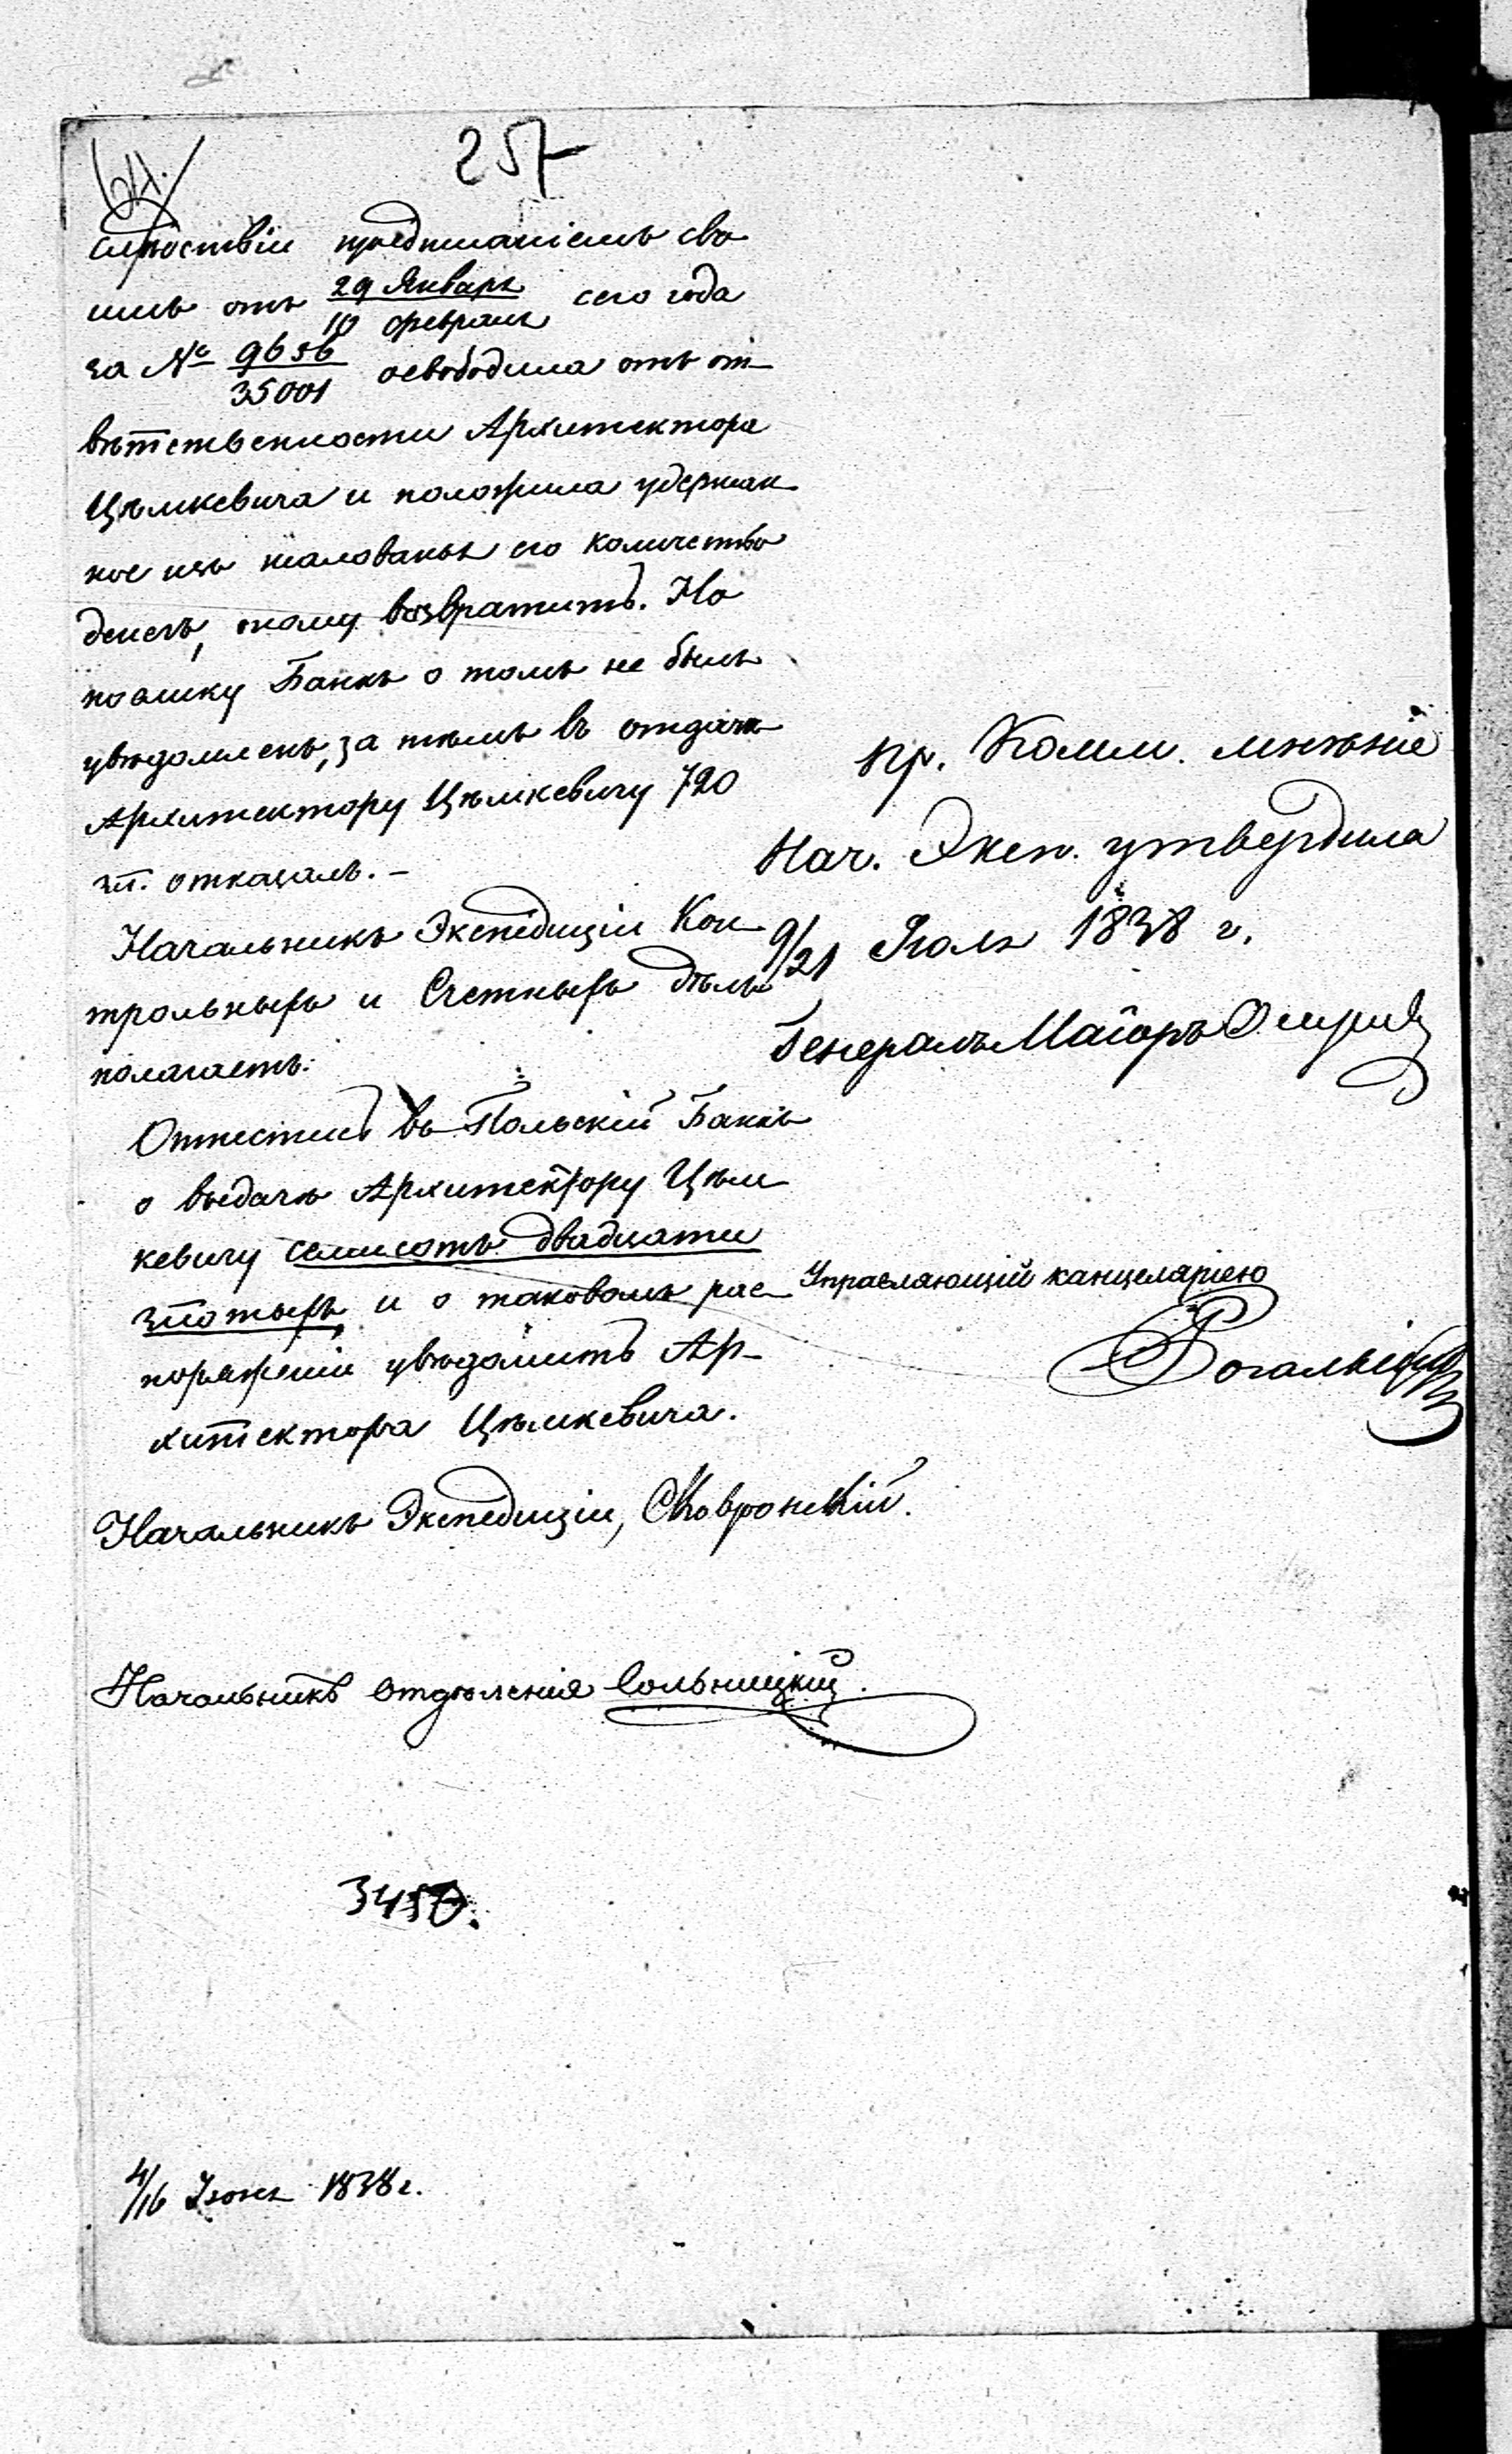 257
64.
слѣдствіи предписаніемъ сво
имъ отъ 29 Января / 10 февраля сего года
за № 9656 / 35001 освободила отъ от-
вѣтственности Архитектора
Цѣмкевича и положила удержан
ное изъ жалованья его количество
денегъ, оному возвратить. Но
поелику Банкъ о томъ не былъ
увѣдомленъ, за тѣмъ въ отдачѣ
Архитектору Цѣмкевичу 720
зл. отказалъ. –
Начальникъ Экспедиціи Кон
трольныхъ и Счетныхъ дѣлъ
полагаетъ:
Отнестись въ Польскій Банкъ
о выдачѣ Архитектору Цѣм
кевичу семисотъ двадцати
злотыхъ, и о таковомъ рас-
поряженіи увѣдомить Ар-
хитектора Цѣмкевича.
Начальникъ Экспедиціи, Сковронскій.
Начальникъ Отдѣленія Сольницкій.
3450.
4/16 Іюня 1838 г.
Пр. Комм. мнѣніе
Нач. Эксп. утвердила
9/21 Іюля 1838 г.
Генералъ Маіоръ
Управляющій канцеляріею